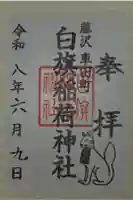 奉拝
藤沢 車田町
白旗稲荷神社
令和八年六月九日